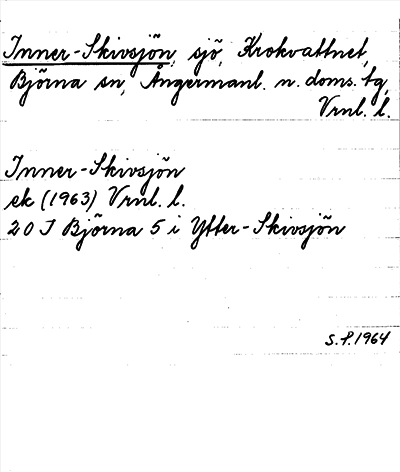 Inner-Skivsjön, sjö, Krokvattnet,
Björna sn, Ångermanl. n. doms. tg,
Vrnl. l.
Inner-Skivsjön
ek (1963) Vrnl. l.
20 I Björna 5 i Ytter-Skivsjön
S.P. 1964